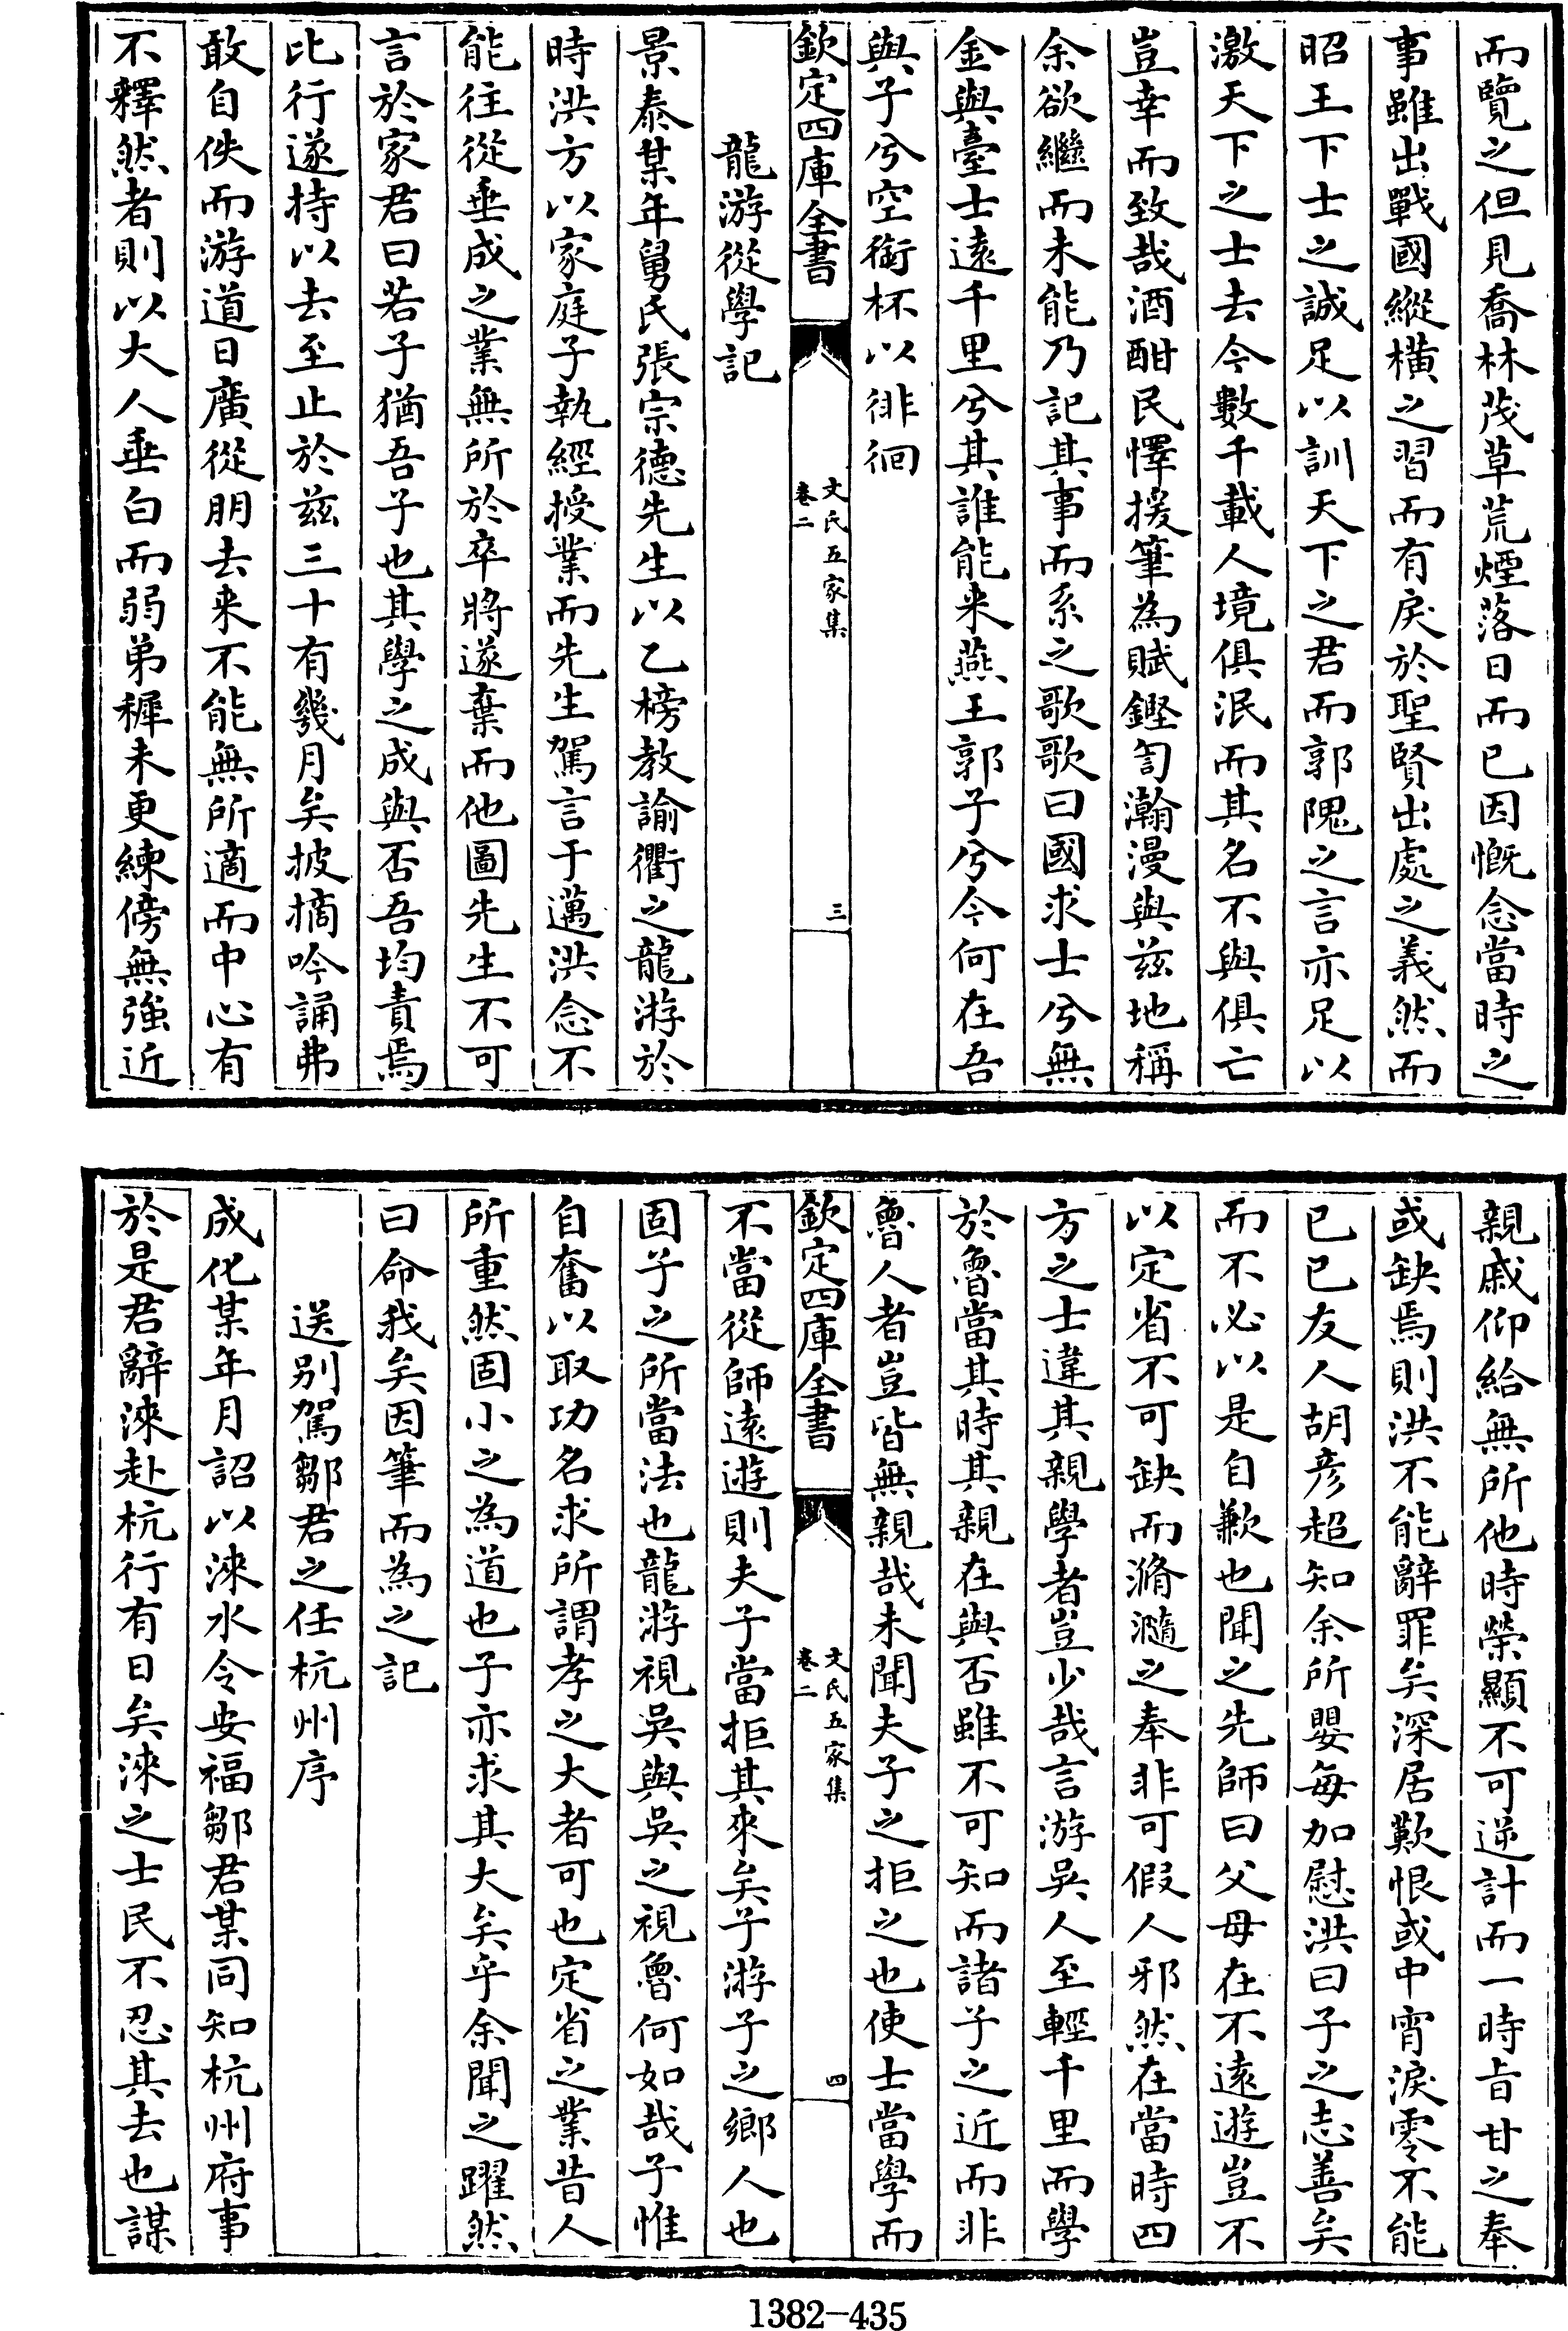 而覽之但見喬林茂草荒煙落日而已因慨念當時之
事雖出戰國縱横之習而有戾於聖賢出處之義然而
昭王下士之誠足以訓天下之君而郭隗之言亦足以
激天下之士去今數千載人境俱泯而其名不與俱亡
豈幸而致哉酒酣民懌援筆為賦鏗訇瀚漫與兹地稱
余欲繼而未能乃記其事而系之歌歌曰國求士兮無
金與臺士遠千里兮其誰能来燕王郭子兮今何在吾
與子兮空銜杯以徘徊
欽定四庫全書
文氏五家集
卷二
三
龍游從學記
景泰某年舅氏張宗德先生以乙榜教諭衢之龍游於
時洪方以家庭子執經授業而先生駕言于邁洪念不
能往從垂成之業無所於卒將遂棄而他圖先生不可
言於家君曰若子猶吾子也其學之成與否吾均責焉
比行遂持以去至止於兹三十有幾月矣披摘吟誦弗
敢自佚而游道日廣從朋去来不能無所適而中心有
不釋然者則以大人垂白而弱弟穉未更練傍無強近
親戚仰給無所他時榮顯不可逆計而一時旨甘之奉
或缺焉則洪不能辭罪矣深居歎恨或中宵淚零不能
已已友人胡彦超知余所嬰每加慰洪曰子之志善矣
而不必以是自歉也聞之先師曰父母在不遠遊豈不
以定省不可缺而滫瀡之奉非可假人邪然在當時四
方之士違其親學者豈少哉言游吳人至輕千里而學
於魯當其時其親在與否雖不可知而諸子之近而非
魯人者豈皆無親哉未聞夫子之拒之也使士當學而
欽定四庫全書
文氏五家集
卷二
四
不當從師遠遊則夫子當拒其來矣子游子之鄉人也
固子之所當法也龍游視吳與吳之視魯何如哉子惟
自奮以取功名求所謂孝之大者可也定省之業昔人
所重然固小之為道也子亦求其大矣乎余聞之躍然
曰命我矣因筆而為之記
送别駕鄒君之任杭州序
成化某年月詔以淶水令安福鄒君某同知杭州府事
於是君辭淶赴杭行有日矣淶之士民不忍其去也謀
1382-435